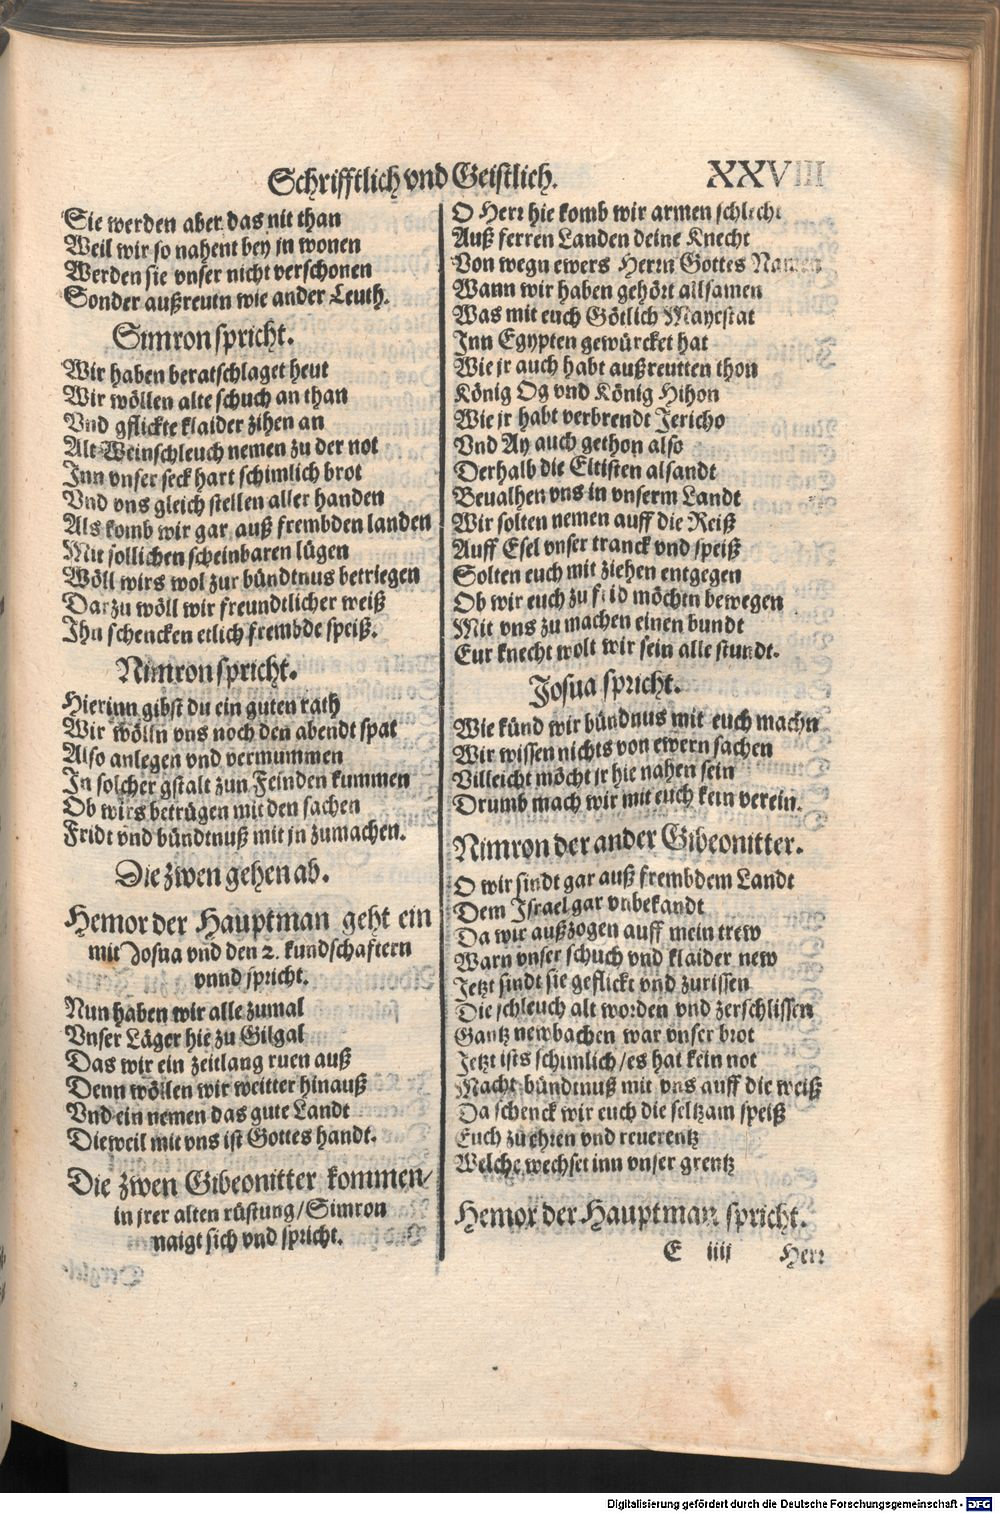 Schrifftlich vnd Geistlich. XXVIII
Sie werden aber das nit than
Weil wir so nahent bey jn wonen
Werden sie vnser nicht verschonen
Sonder außreutn wie ander Leuth.
Simron spricht.
Wir haben beratschlaget heut
Wir wöllen alte schuch an than
Vnd gflickte klaider zihen an
Alt Weinschleuch nemen zu der not
Inn vnser seck hart schimlich brot
Vnd vns gleich stellen aller handen
Als komb wir gar auß frembden landen
Mit sollichen scheinbaren lügen
Wöll wirs wol zur bündtnus betriegen
Darzu wöll wir freundtlicher weiß
Ihn schencken etlich frembde speiß.
Nimron spricht.
Hierinn gibst du ein guten rath
Wir wölln vns noch den abendt spat
Also anlegen vnd vermummen
In solcher gstalt zun Feinden kummen
Ob wirs betrügen mit den sachen
Fridt vnd bündtnuß mit jn zumachen.
Die zwen gehen ab.
Hemor der Hauptman geht ein
mit Josua vnd den 2. kundschaftern
vnnd spricht.
Nun haben wir alle zumal
Vnser Läger hie zu Gilgal
Das wir ein zeitlang ruen auß
Denn wöllen wir weitter hinauß
Vnd ein nemen das gute Landt
Dieweil mit vns ist Gottes handt.
Die zwen Gibeonitter kommen/
in jrer alten rüstung/Simron
naigt sich vnd spricht.
O Herr hie komb wir armen schlecht
Auß ferren Landen deine Knecht
Von wegn ewers Herrn Gottes Namen
Wann wir haben gehört allsamen
Was mit euch Götlich Mayestat
Inn Egypten gewürcket hat
Wie jr auch habt außreutten thon
König Og vnd König Hihon
Wie jr habt verbrendt Jericho
Vnd Ay auch gethon also
Derhalb die Eltisten alsandt
Beualhen vns in vnserm Landt
Wir solten nemen auff die Reiß
Auff Esel vnser tranck vnd speiß
Solten euch mit ziehen entgegen
Ob wir euch zu frid möchtn bewegen
Mit vns zu machen einen bundt
Eur knecht wolt wir sein alle stundt.
Josua spricht.
Wie künd wir bündnus mit euch machn
Wir wissen nichts von ewern sachen
Villeicht möcht jr hie nahen sein
Drumb mach wir mit euch kein verein.
Nimron der ander Gibeonitter.
O wir sindt gar auß frembdem Landt
Dem Israel gar vnbekandt
Da wir außzogen auff mein trew
Warn vnser schuch vnd klaider new
Jetzt sindt sie geflickt vnd zurissen
Die schleuch alt worden vnd zerschlissen
Gantz newbachen war vnser brot
Jetzt ists schimlich/es hat kein not
Macht bündtnuß mit vns auff die weiß
Da schenck wir euch die seltzam speiß
Euch zu ehren vnd reuerentz
Welche wechset inn vnser grentz
Hemor der Hauptman spricht.
E iiij Herr
Digitalisierung gefördert durch die Deutsche Forschungsgemeinschaft - DFG